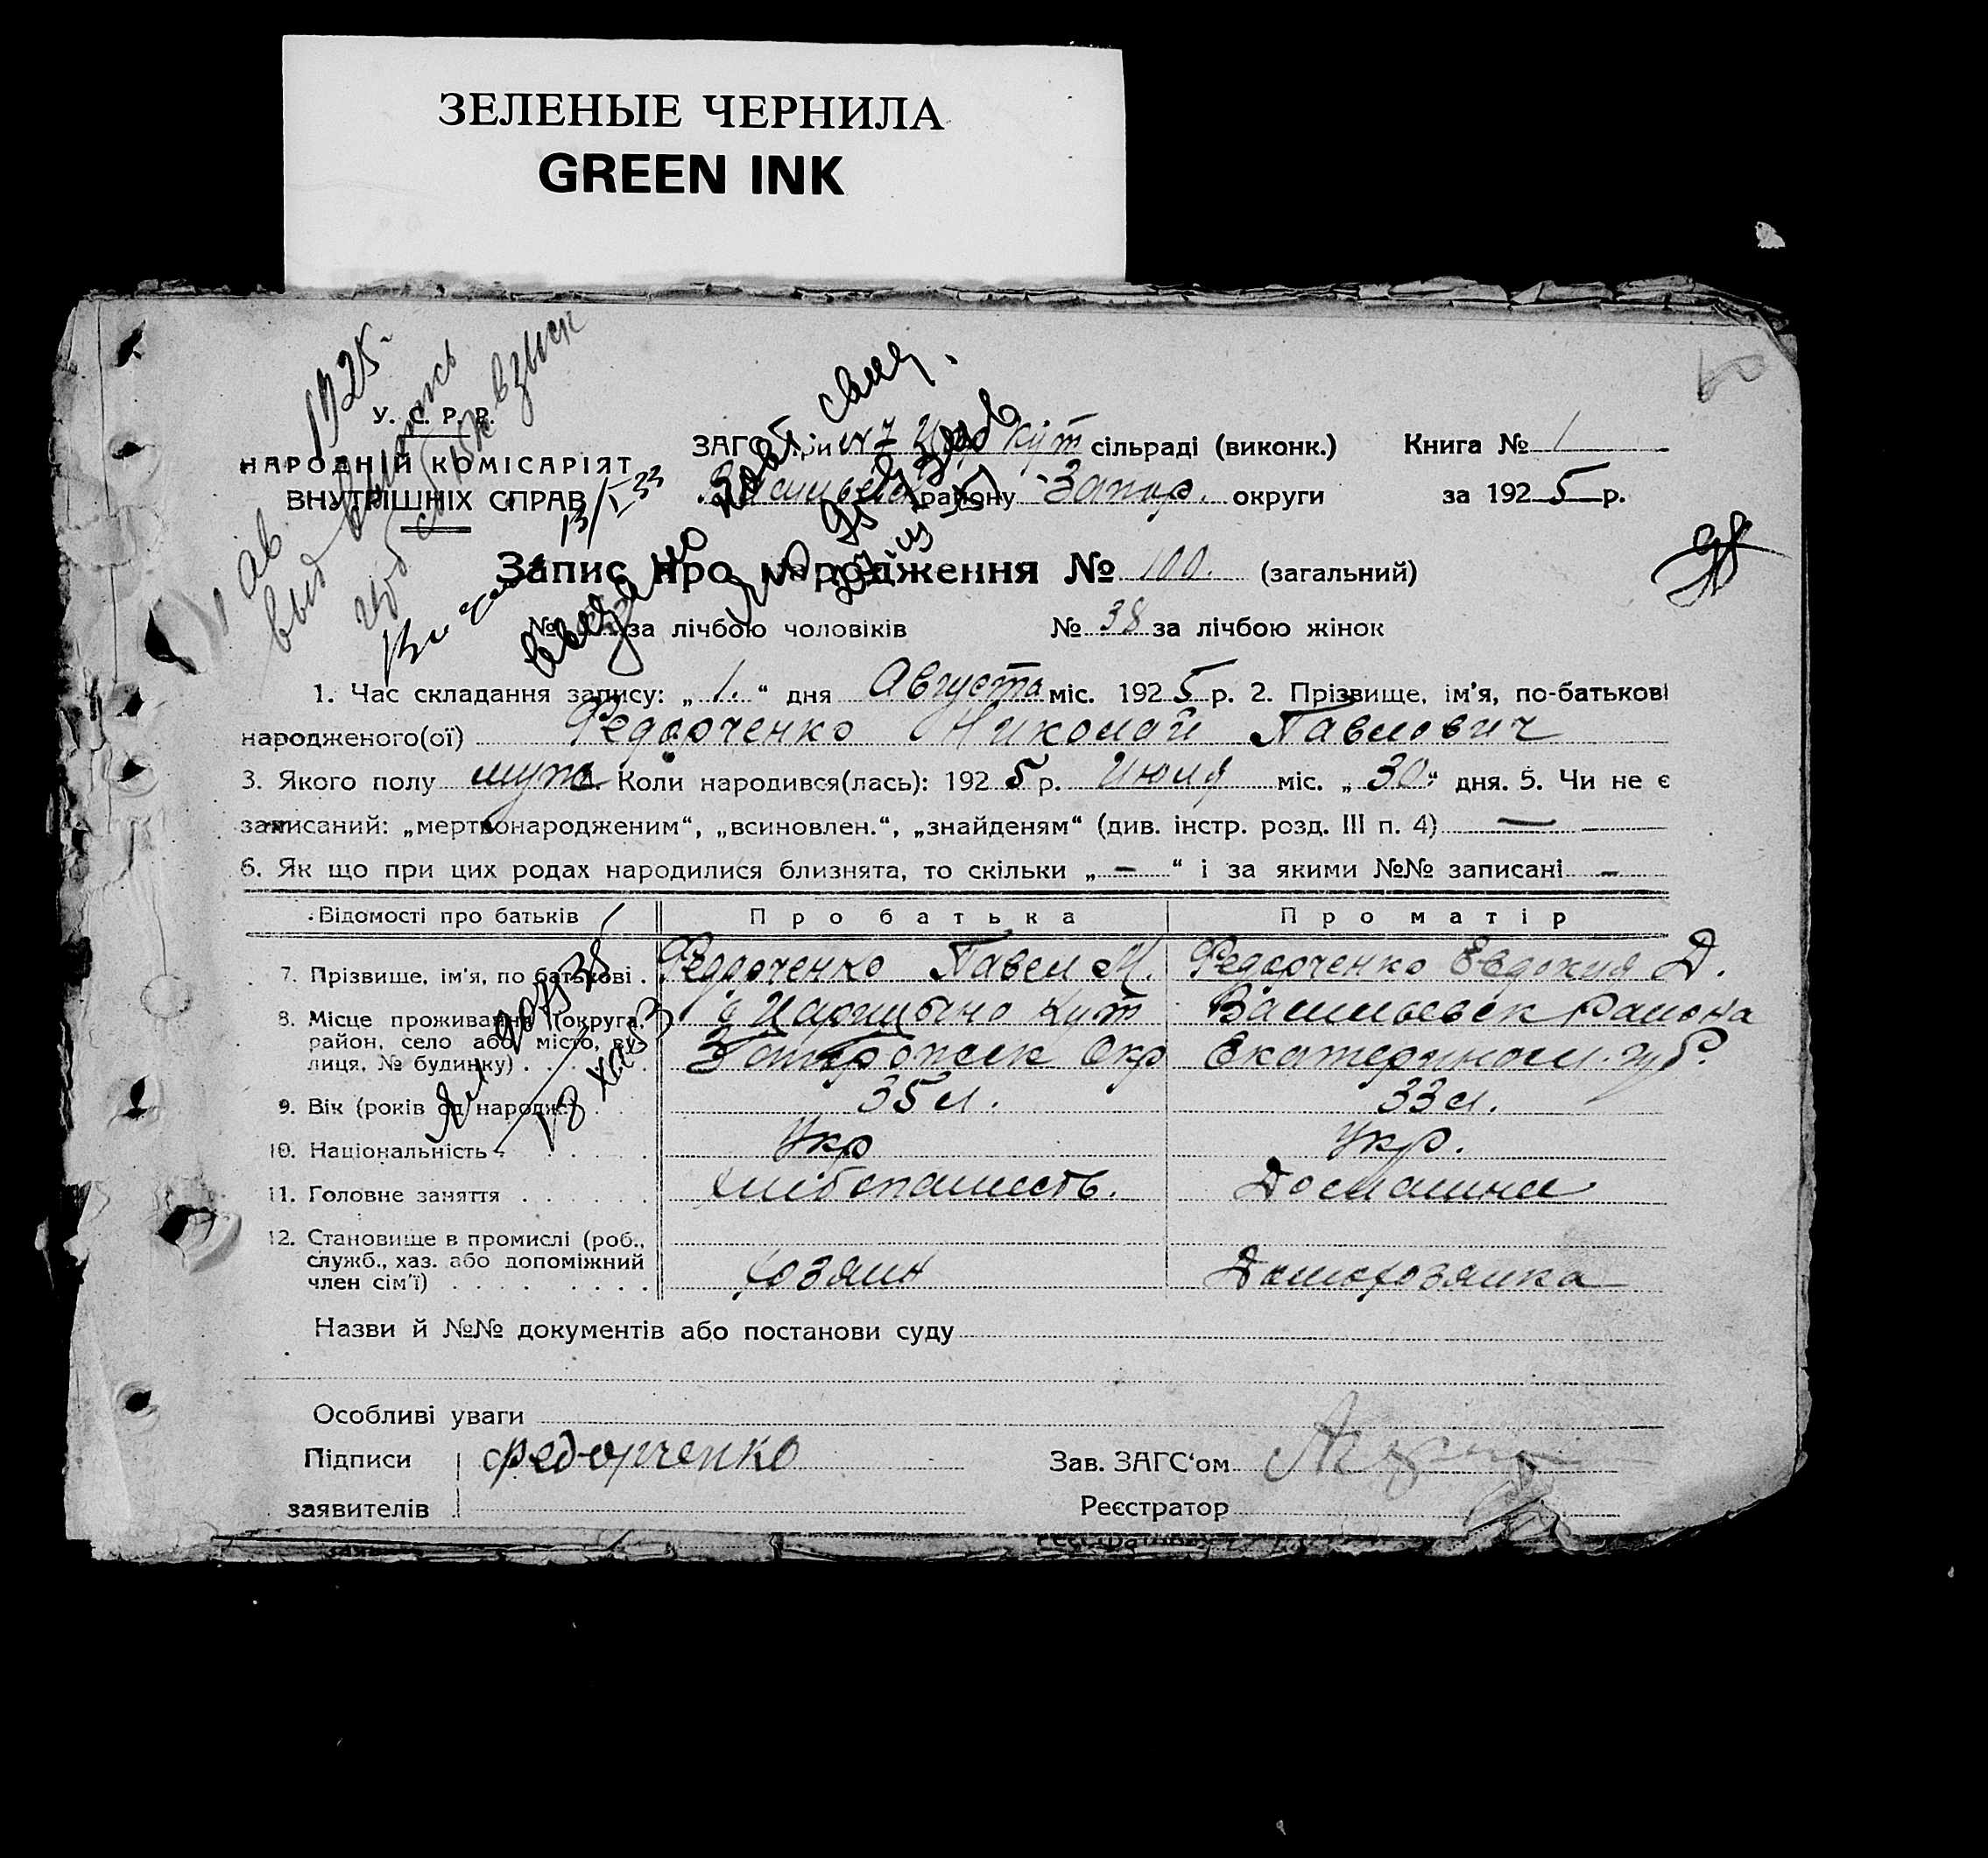 ЗЕЛЕНЫЕ ЧЕРНИЛА
GREEN INK
1925
У. С. Р. Р.
НАРОДНІЙ КОМІСАРІЯТ
ВНУТРІШНІХ СПРАВ
ЗАГС при №7 Кут сільраді (виконк.) Книга № 1
району Запор. округи за 1925 р.
Запис про народження № 100. (загальний)
№ за лічбою чоловіків № 38 за лічбою жінок
1. Час складання запису: „ 1. “ дня Августа міс. 1925 р. 2. Прізвище, ім'я, по-батькові
народженого(ої) Федорченко Николай Павлович
3. Якого полу муж. Коли народився(лась): 1925 р. Июля міс. „ 30 “ дня. 5. Чи не є
записаний: „мертвонародженим“, „всиновлен.“, „знайденям“ (див. інстр. розд. III п. 4) —
6. Як що при цих родах народилися близнята, то скільки „ — “ і за якими №№ записані —
Відомості про батьків Про батька Про матір
7. Прізвище, ім'я, по батькові . Федорченко Павел М. Федорченко Евдокия Д.
8. Місце проживання (округа, с Царицыно Кут Васильевск Района
район, село або місто, ву-
лиця, № будинку) . Запорожск Окр Екатериносл. губ.
9. Вік (років од народж.) 35 л. 33 л.
10. Національність Укр Укр.
11. Головне заняття хлібопашесть. Домашнее
12. Становище в промислі (роб.,
служб., хаз. або допоміжний
член сім'ї) хозяин Домохозяйка
Назви й №№ документів або постанови суду
Особливі уваги
Підписи Федорченко Зав. ЗАГС'ом
заявителів Реєстратор